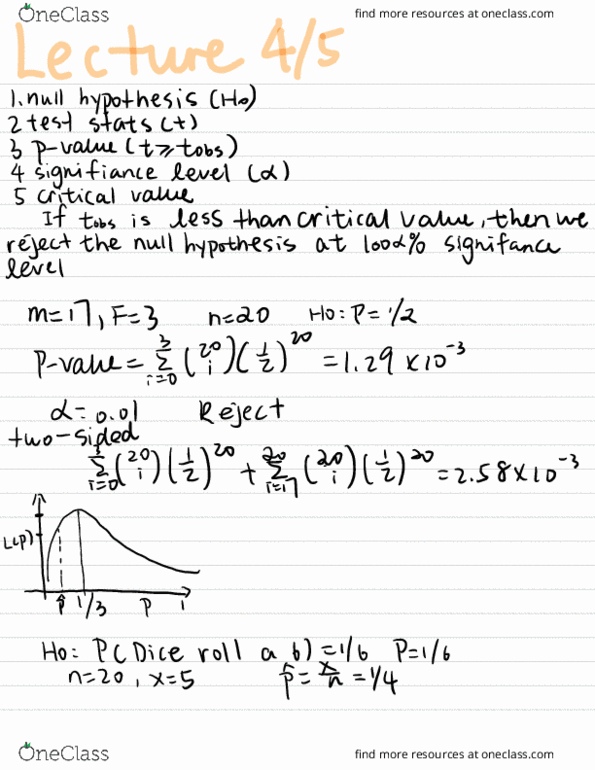 OneClass
find more resources at oneclass.com
Lecture 4/5
1. null hypothesis (H₀)
2 test stats (t)
3 p-value (t⩾tobs)
4 signifiance level (α)
5 critical value
If tobs is less than critical value, then we
reject the null hypothesis at 100α% signifance
level
m=17, F=3 n=20 H₀: P=1/2
P-value = 3 Σ i=0 (20 i)(1/2)^20 = 1.29 × 10^-3
α=0.01 Reject
two-sided
3 Σ i=0 (20 i)(1/2)^20 + 20 Σ i=17 (20 i)(1/2)^20 = 2.58×10^-3
L(p)
p̂ 1/3 p 1
H₀: P(Dice roll a 6) = 1/6 P=1/6
n=20, x=5 p̂ = x/n = 1/4
OneClass
find more resources at oneclass.com